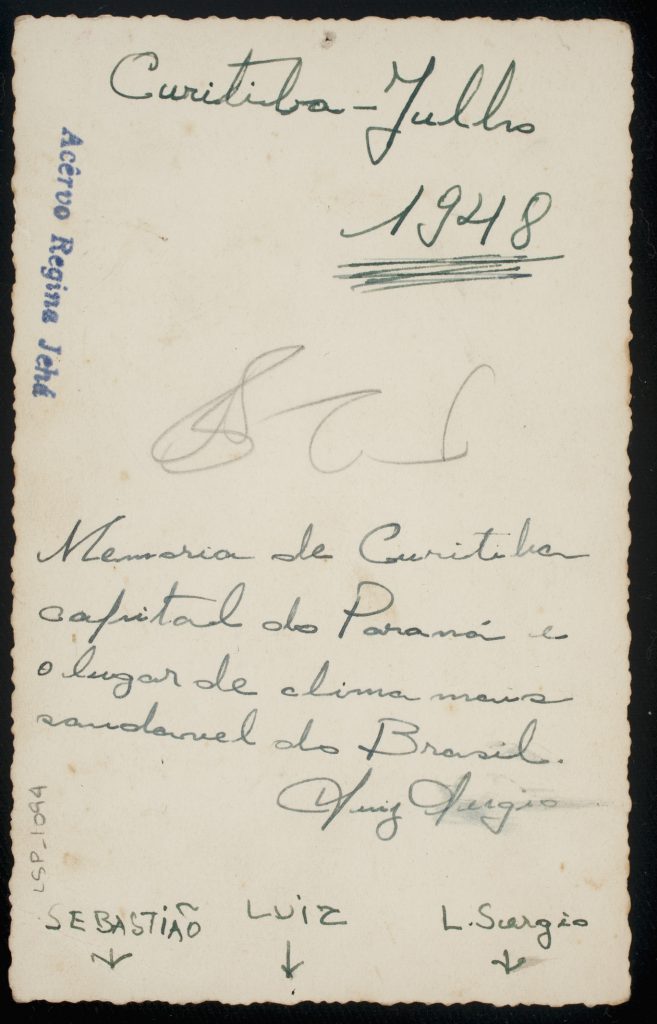 Curitiba - Julho
1948
Acêrvo Regina Jehá
Memoria de Curitiba
capital do Paraná e
o lugar de clima mais
saudavel do Brasil.
Luiz Sergio
LSP-1094
SEBASTIÃO LUIZ L. Sergio